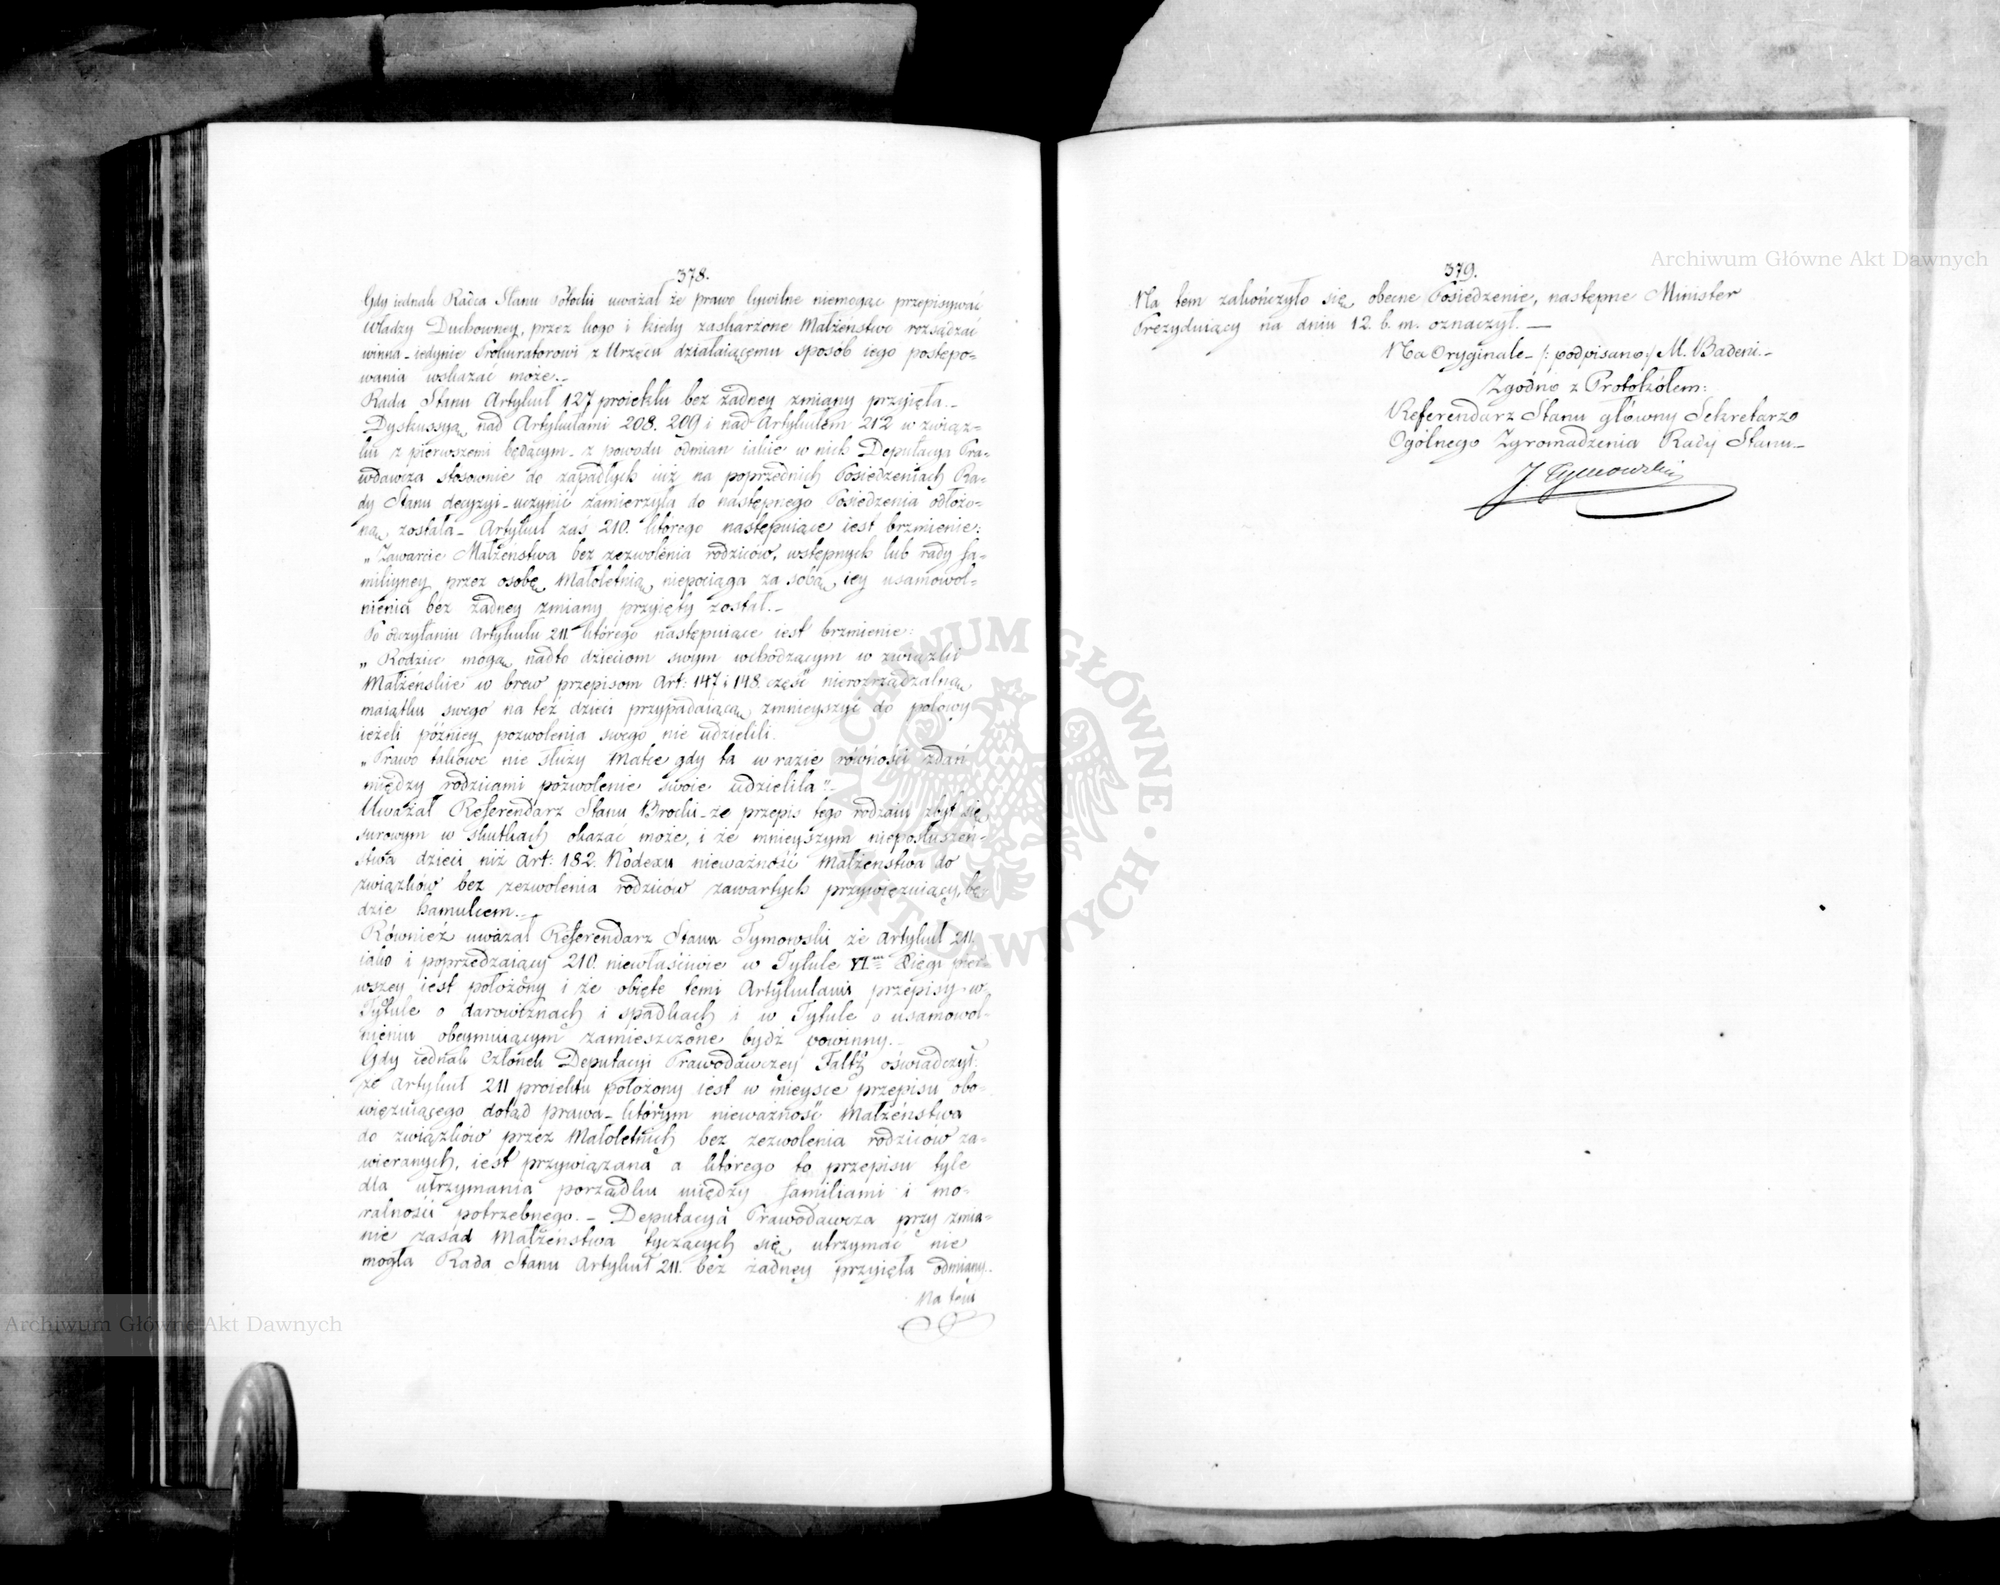 378.
Gdy iednak Radca Stanu Potocki uważał że prawo Cywilne niemogąc przepisywać
władzy Duchowney, przez kogo i kiedy zaskarżone Małżeństwo rozsądzać
winna - iedynie Prokuratorowi z Urzędu działaiącemu sposób iego postępo-
wania wskazać może._
Rada Stanu Artykuł 127 proiektu bez żadney zmiany przyięła._
Dyskussya nad Artykułami 208. 209 i nad Artykułem 212 w związ-
ku z pierwszemi będącym - z powodu odmian iakie w nich Deputacya Pra-
wdawcza stosownie do zapadłych iuż na poprzednich Posiedzeniach Ra-
dy Stanu decyzyi - uczynić zamierzyła do następnego Posiedzenia odłożo-
na została - Artykuł zaś 210. którego następuiące iest brzmienie:
„Zawarcie Małżeństwa bez zezwolenia rodziców, wstępnych lub rady fa-
miliyney przez osobę Małoletnią niepociąga za sobą iey usamowol-
nienia bez żadney zmiany przyięty został._
Po odczytaniu Artykułu 211 którego następuiące iest brzmienie:
„Rodzice mogą nadto dzieciom swym wchodzącym w związki
Małżeńskie w brew przepisom Art: 147 i 148. część nierozrządzalną
maiątku swego na też dzieci przypadaiącą zmnieyszyć do połowy
ieżeli późniey pozwolenia swego nie udzielili.
„Prawo takowe nie służy Matce gdy ta w razie równości zdań
między rodzicami pozwolenie swoie udzieliła"_
Uważał Referendarz Stanu Brocki - że przepis tego rodzaiu zbyt się
surowym w skutkach okazać może, i że mnieyszym nieposłuszeń-
stwa dzieci niż Art: 182. Kodexu nieważność Małżeństwa do
związków bez zezwolenia rodziców zawartych przywięzuiący, bę-
dzie hamulcem._
Również uważał Referendarz Stanu Tymowski że Artykuł 211.
iako i poprzedzaiący 210. niewłaściwie w Tytule VI Xięgi pier-
wszey iest położony i że obięte temi Artykułami przepisy w
Tytule o darowiznach i spadkach i w Tytule o usamowol-
nieniu obeymuiącym zamieszczone bydź powinny._
Gdy iednak Członek Deputacyi Prawodawczey Faltz oświadczył:
że Artykuł 211 proiektu położony iest w mieysce przepisu obo-
więzuiącego dotąd prawa - którym nieważność Małżeństwa
do związków przez Małoletnich bez zezwolenia rodziców za-
wieranych, iest przywiązana a którego to przepisu tyle
dla utrzymania porządku między familiami i mo-
ralności potrzebnego. - Deputacya Prawodawcza przy zmia-
nie zasad Małżeństwa tyczących się utrzymać nie
mogła Rada Stanu Artykuł 211. bez żadney przyięła odmiany.
Na tem
379.
Na tem zakończyło się obecne Posiedzenie, następne Minister
Prezyduiący na dniu 12. b. m. oznaczył. _
Na Oryginale - /: podpisano :/ M. Badeni. -
Zgodno z Protokółem:
Referendarz Stanu główny Sekretarz
Ogólnego Zgromadzenia Rady Stanu -
J. Tymowski
Archiwum Główne Akt Dawnych
Archiwum Główne Akt Dawnych
ARCHIWUM GŁÓWNE · AKT DAWNYCH ·